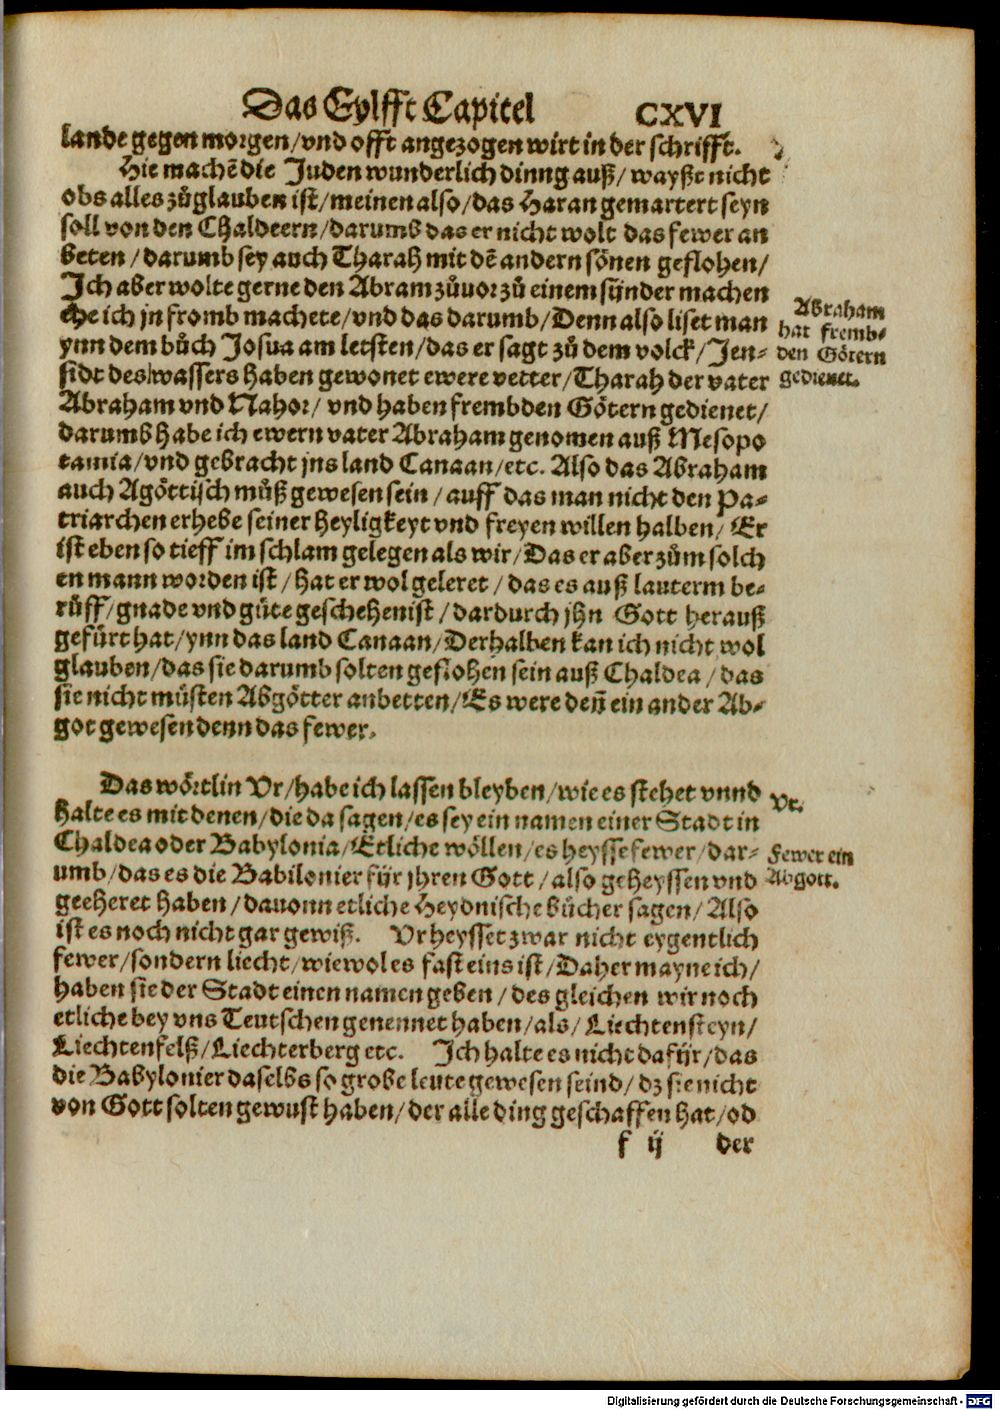 Das Eylfft Capitel CXVI
lande gegen morgen/vnd offt angezogen wirt in der schrifft.
Hie machẽ die Juden wunderlich dinng auß/wayßt nicht
obs alles zůglauben ist/meinen also/das Haran gemartert seyn
soll von den Chaldeern/darumb das er nicht wolt das fewer an
beten/darumb sey auch Tharah mit dẽ andern sönen geflohen/
Ich aber wolte gerne den Abram zůuor zů einem sünder machen
ehe ich jn fromb machete/vnd das darumb/Denn also liset man
ynn dem bůch Josua am letsten/das er sagt zů dem volck/Jen-
sidt des wassers haben gewonet ewere vetter/Tharah der vater
Abraham vnd Nahor/vnd haben frembden Götern gedienet/
darumb habe ich ewern vater Abraham genomen auß Mesopo
tamia/vnd gebracht jns land Canaan/etc. Also das Abraham
auch Agöttisch můß gewesen sein/auff das man nicht den Pa-
triarchen erhebe seiner heyligkeyt vnd freyen willen halben/Er
ist eben so tieff im schlam gelegen als wir/Das er aber zům solch
en mann worden ist/hat er wol geleret/das es auß lauterm be-
růff/gnade vnd güte geschehen ist/dardurch jhn Gott herauß
gefürt hat/ynn das land Canaan/Derhalben kan ich nicht wol
glauben/das sie darumb solten geflohen sein auß Chaldea/das
sie nicht müsten Abgötter anbetten/Es were deñ ein ander Ab-
got gewesen denn das fewer.
Abraham
hat fremb-
den Götern
gedienet.
Das wörtlin Vr/habe ich lassen bleyben/wie es stehet vnnd
halte es mit denen/die da sagen/es sey ein namen einer Stadt in
Chaldea oder Babylonia/Etliche wöllen/es heysse fewer/dar-
umb/das es die Babilonier für jhren Gott/also geheyssen vnd
geeheret haben/dauonn etliche Heydnische bücher sagen/Also
ist es noch nicht gar gewiß. Vr heysset zwar nicht eygentlich
fewer/sondern liecht/wiewol es fast eins ist/Daher mayne ich/
haben sie der Stadt einen namen geben/des gleichen wir noch
etliche bey vns Teutschen genennet haben/als/Liechtensteyn/
Liechtenfelß/Liechterberg etc. Ich halte es nicht dafür/das
die Babylonier daselbs so grobe leute gewesen seind/dz sie nicht
von Gott solten gewust haben/der alle ding geschaffen hat/od
Vr.
Fewer ein
Abgott.
f ij der
Digitalisierung gefördert durch die Deutsche Forschungsgemeinschaft - DFG